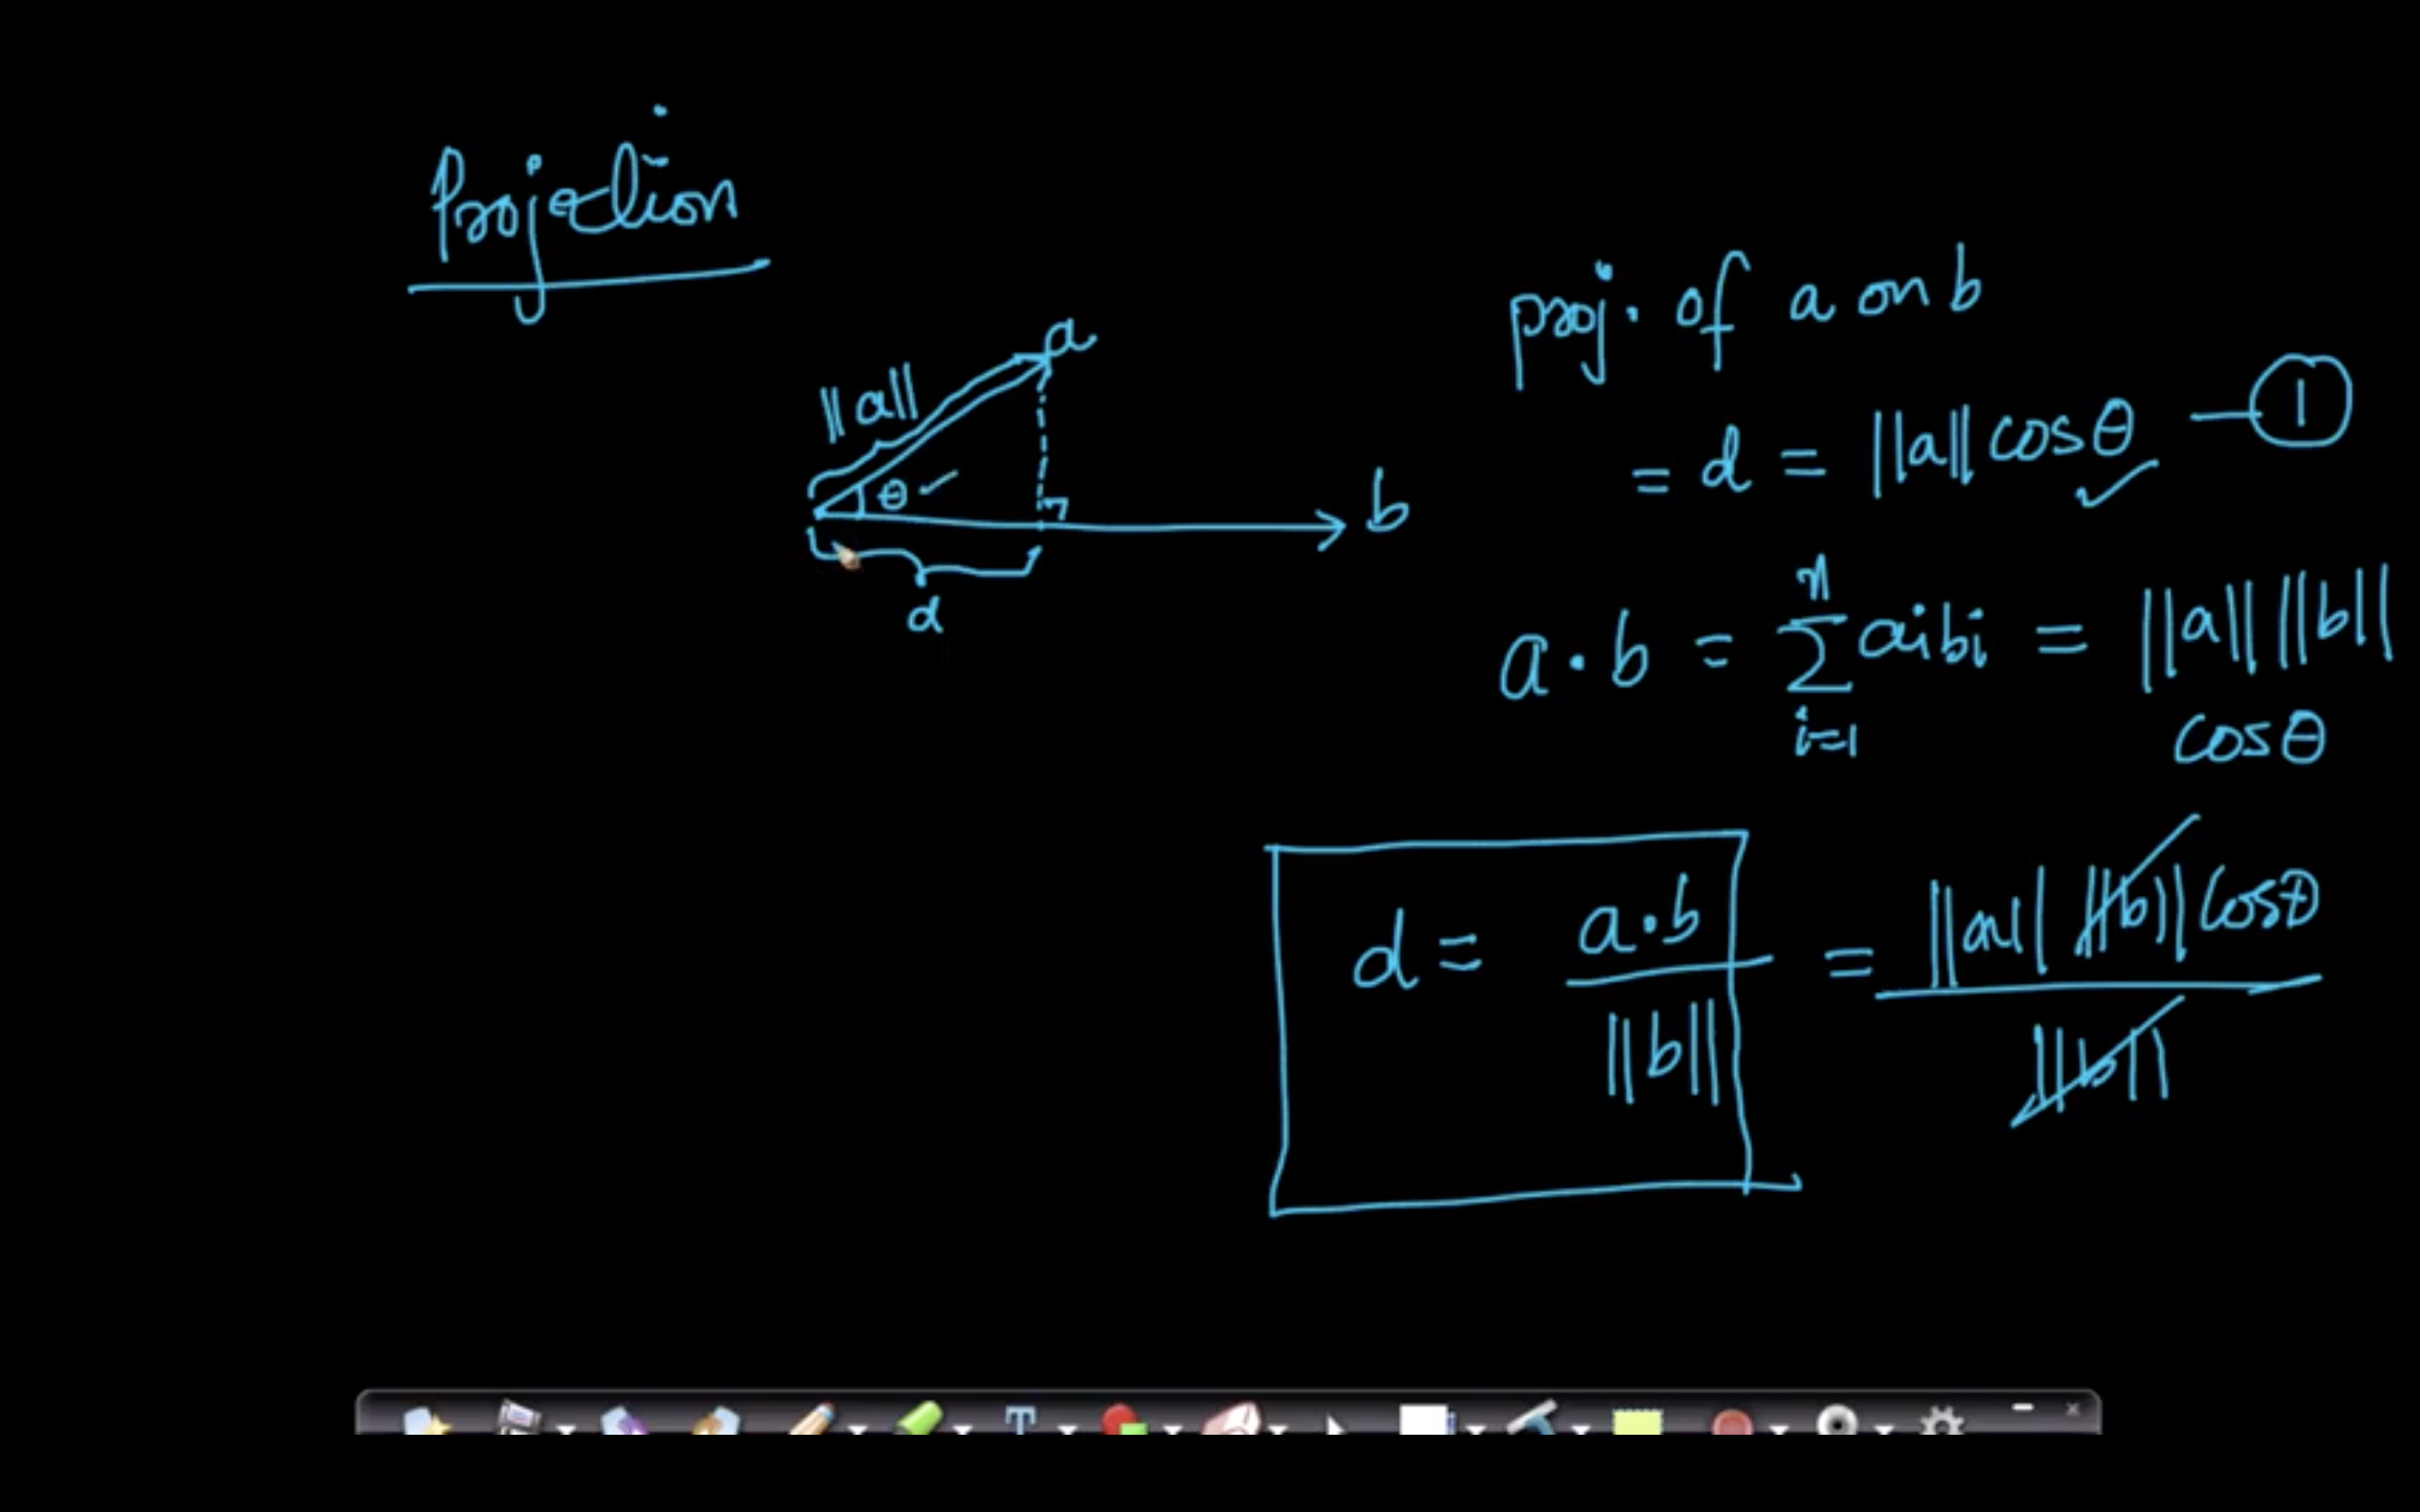 Projection
a
||a||
θ
b
d
proj. of a on b
= d = ||a|| cosθ — 1
n
a · b = Σ aibi = ||a|| ||b||
i=1
cosθ
d = a·b / ||b|| = ||a|| ||b|| cosθ / ||b||
T